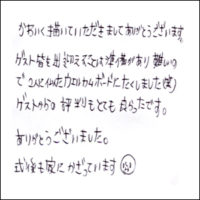 かわいく描いていただきましてありがとうございます。
ゲスト皆を出迎えすることは準備があり難しいの
で2人に似たウェルカムボードにたくしました(笑)
ゲストからの評判もとても良かったです。
ありがとうございました。
式後も家にかざっています